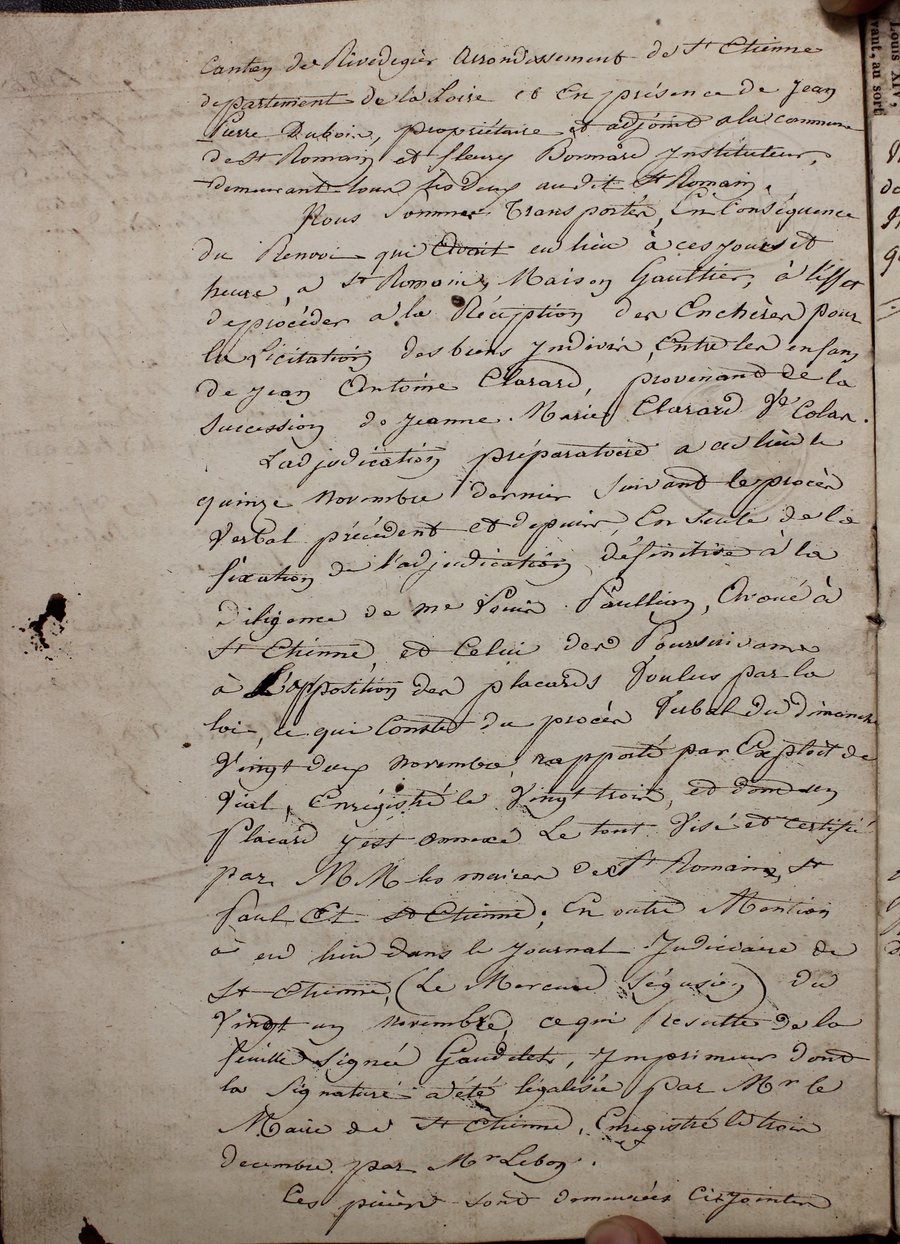 Canton de Rivedegier arrondissement de St Etienne
departement de la Loire et En présence de Jean
Pierre Duboin, propriétaire et adjoint a la commune
de St Romain et fleury Bonnard Instituteur,
demeurant tous les deux audit St Romain.
Nous Sommes Transportés, En Conséquence
du Renvoi qui avait eu lieu à ces jours et
heure, a St Romain, Maison Gaulthier, à l'effet
de procéder à la Réception des Enchères pour
la licitation des biens Indivis, Entre les enfans
de Jean Antoine Clarard, provenand de la
Succession de Jeanne Marie Clarard Ve Colas.
L'adjudication préparatoire a eu lieu le
quinze novembre dernier suivant le procès
Verbal précédent et depuis, En suite de la
fixation de l'adjudication définitive à la
diligence de me Paullian, Avoué à
St Etienne et Celui des Poursuivans
à L'apposition des placards Voulus par la
loi, ce qui Conste du procès Verbal du dimanche
Vingt deux novembre rapporté par Exploit de
Vial, Enrégistré le Vingt trois, et dond un
Placard y est annexé Le tout Visé et certifié
par MM les maires de St Romain, St
Paul Et St Etienne; En outre Mention
à eu lieu dans le Journal Judiciaire de
St Etienne, (Le Mercure Ségusien) du
Vingt un novembre, ce qui Resulte de la
feuille signée Gaudelet, Imprimeur dond
la Signature a été légalisée par Mr le
Maire de St Etienne, Enregistré le trois
decembre par Mr Lebon.
Ces pièces sond demeurées Cijointes
Louis XIV,
vant, au sort